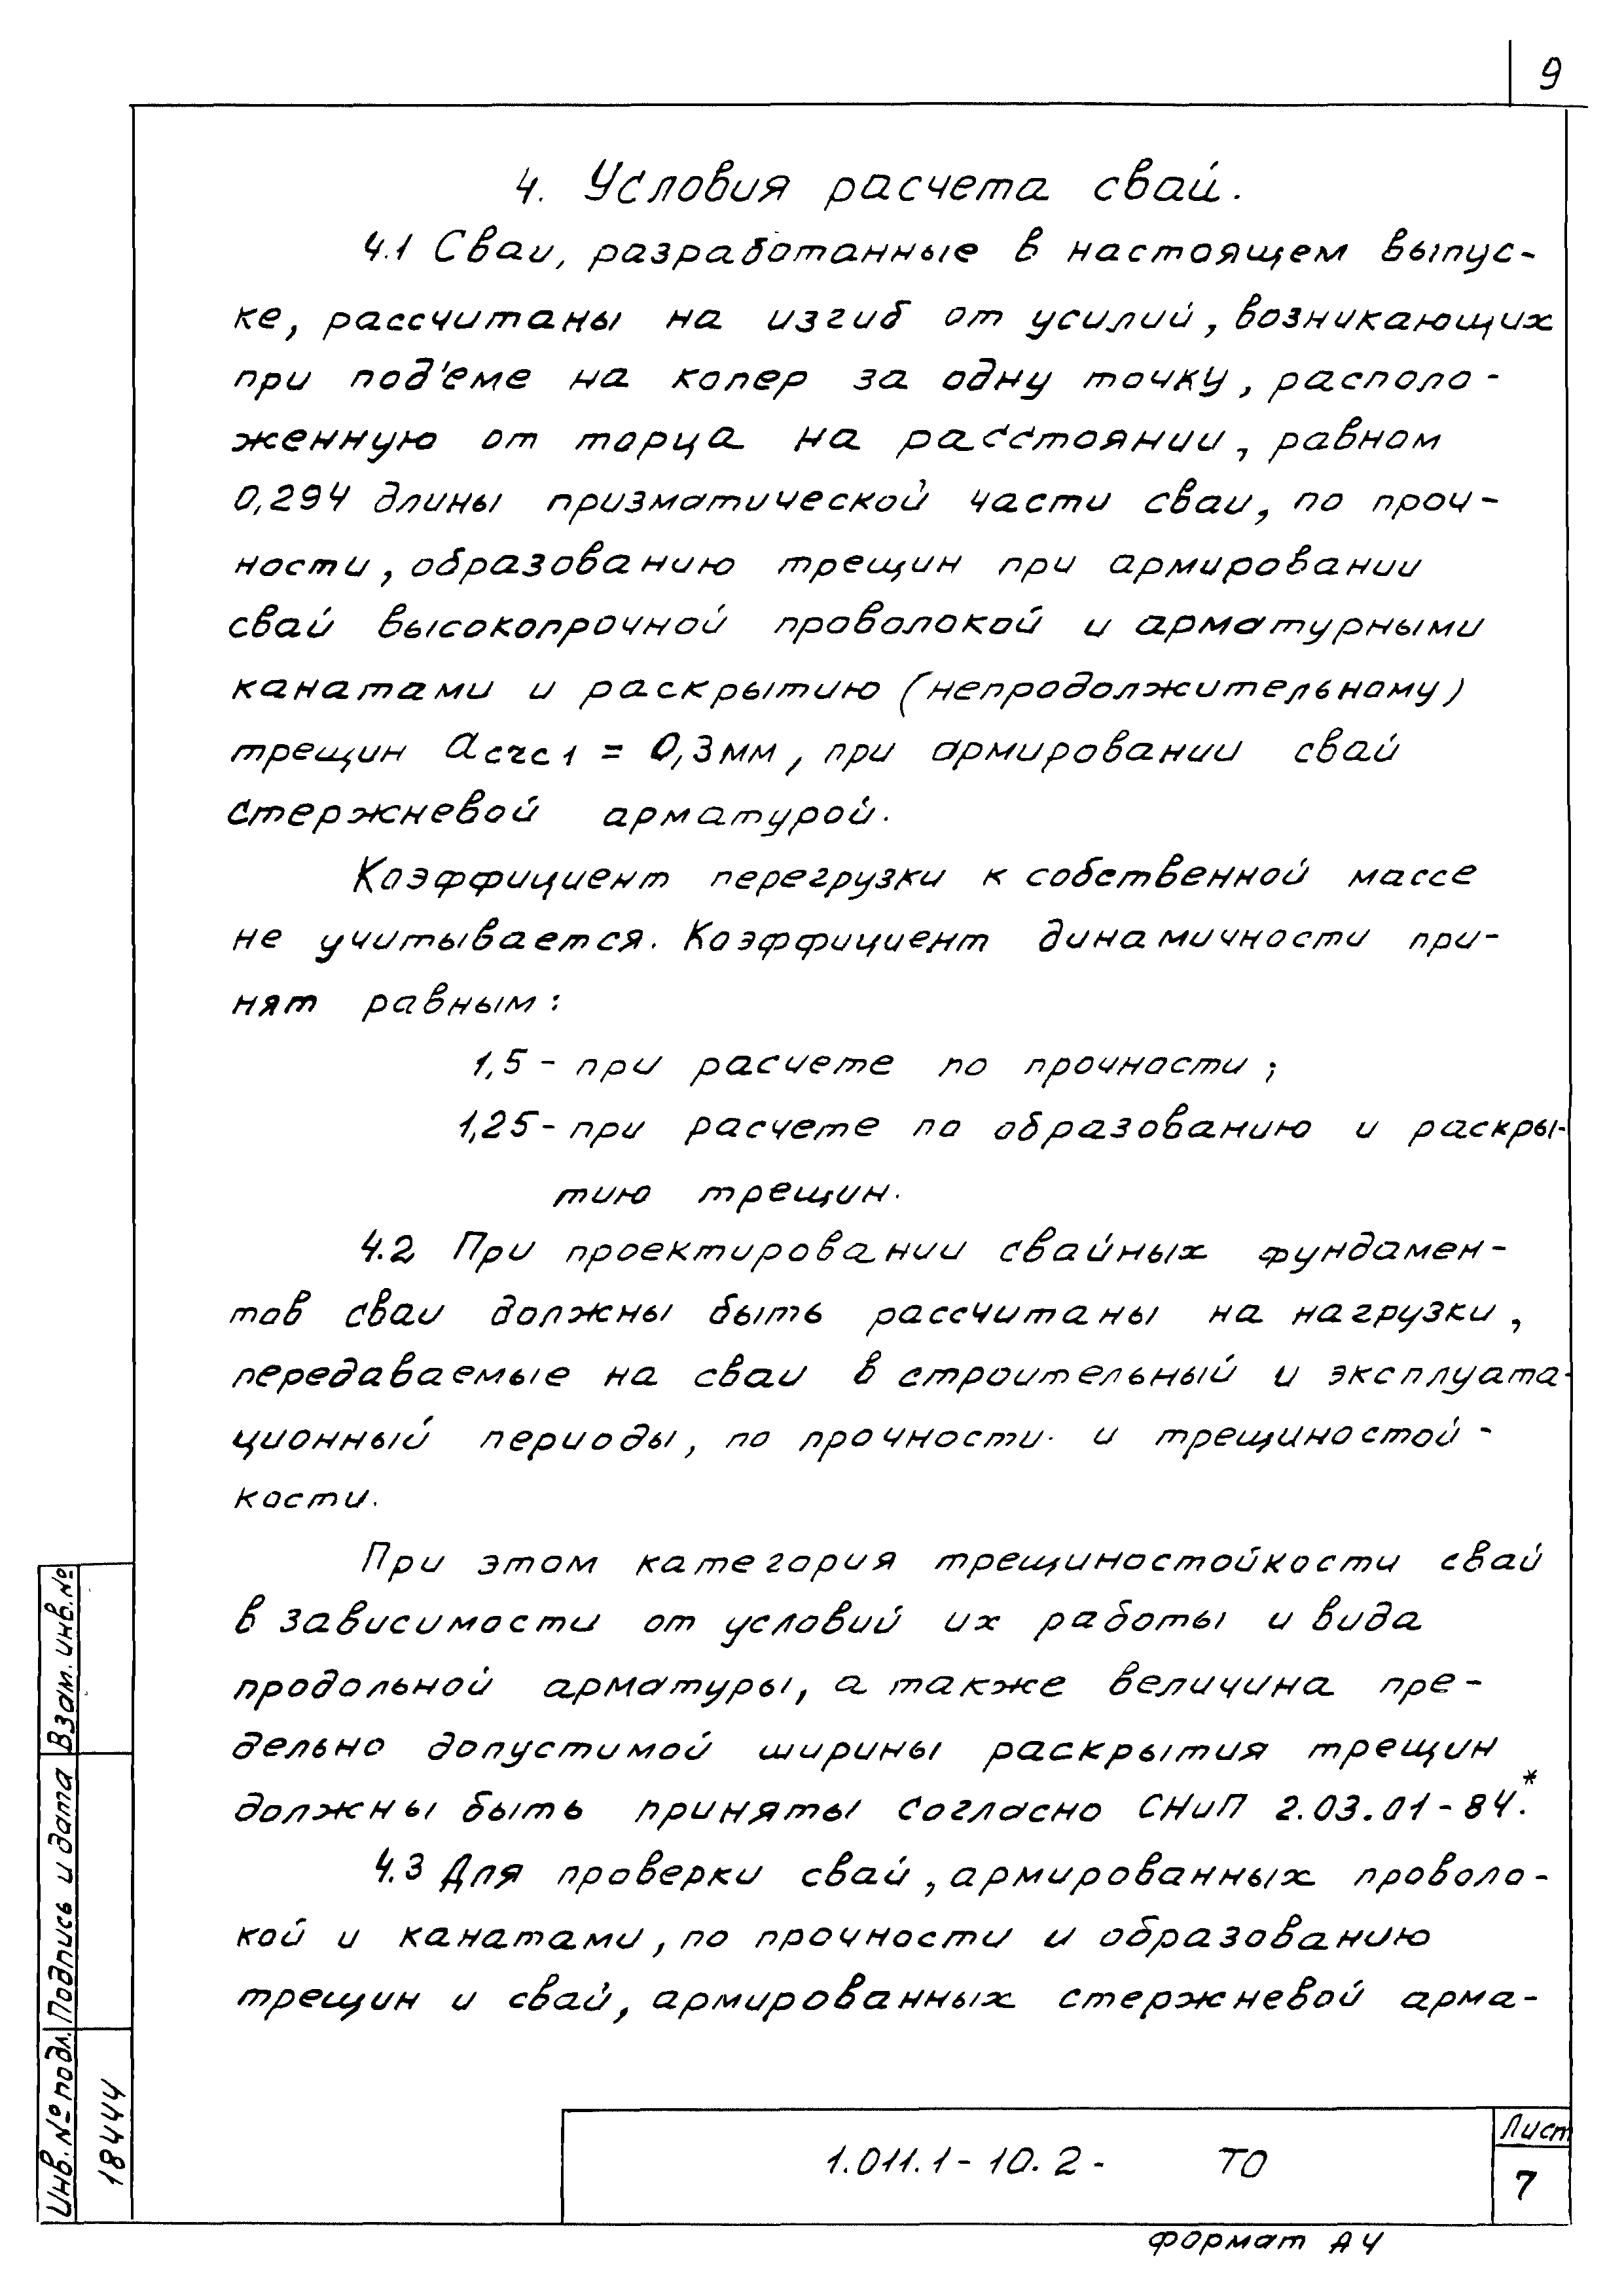 9
4. Условия расчета свай.
4.1 Сваи, разработанные в настоящем выпус-
ке, рассчитаны на изгиб от усилий, возникающих
при под'еме на копер за одну точку, располо-
женную от торца на расстоянии, равном
0,294 длины призматической части сваи, по проч-
ности, образованию трещин при армировании
свай высокопрочной проволокой и арматурными
канатами и раскрытию (непродолжительному)
трещин aсчс1 = 0,3мм, при армировании свай
стержневой арматурой.
Коэффициент перегрузки к собственной массе
не учитывается. Коэффициент динамичности при-
нят равным:
1,5 - при расчете по прочности;
1,25 - при расчете по образованию и раскры-
тию трещин.
4.2 При проектировании свайных фундамен-
тов сваи должны быть рассчитаны на нагрузки,
передаваемые на сваи в строительный и эксплуата-
ционный периоды, по прочности и трещиностой-
кости.
При этом категория трещиностойкости свай
в зависимости от условий их работы и вида
продольной арматуры, а также величина пре-
дельно допустимой ширины раскрытия трещин
должны быть приняты согласно СНиП 2.03.01-84.*
4.3 Для проверки свай, армированных проволо-
кой и канатами, по прочности и образованию
трещин и свай, армированных стержневой арма-
Взам. инв.№
Подпись и дата
Инв.№ подл.
18444
1.011.1-10.2- ТО
Лист
7
формат А4